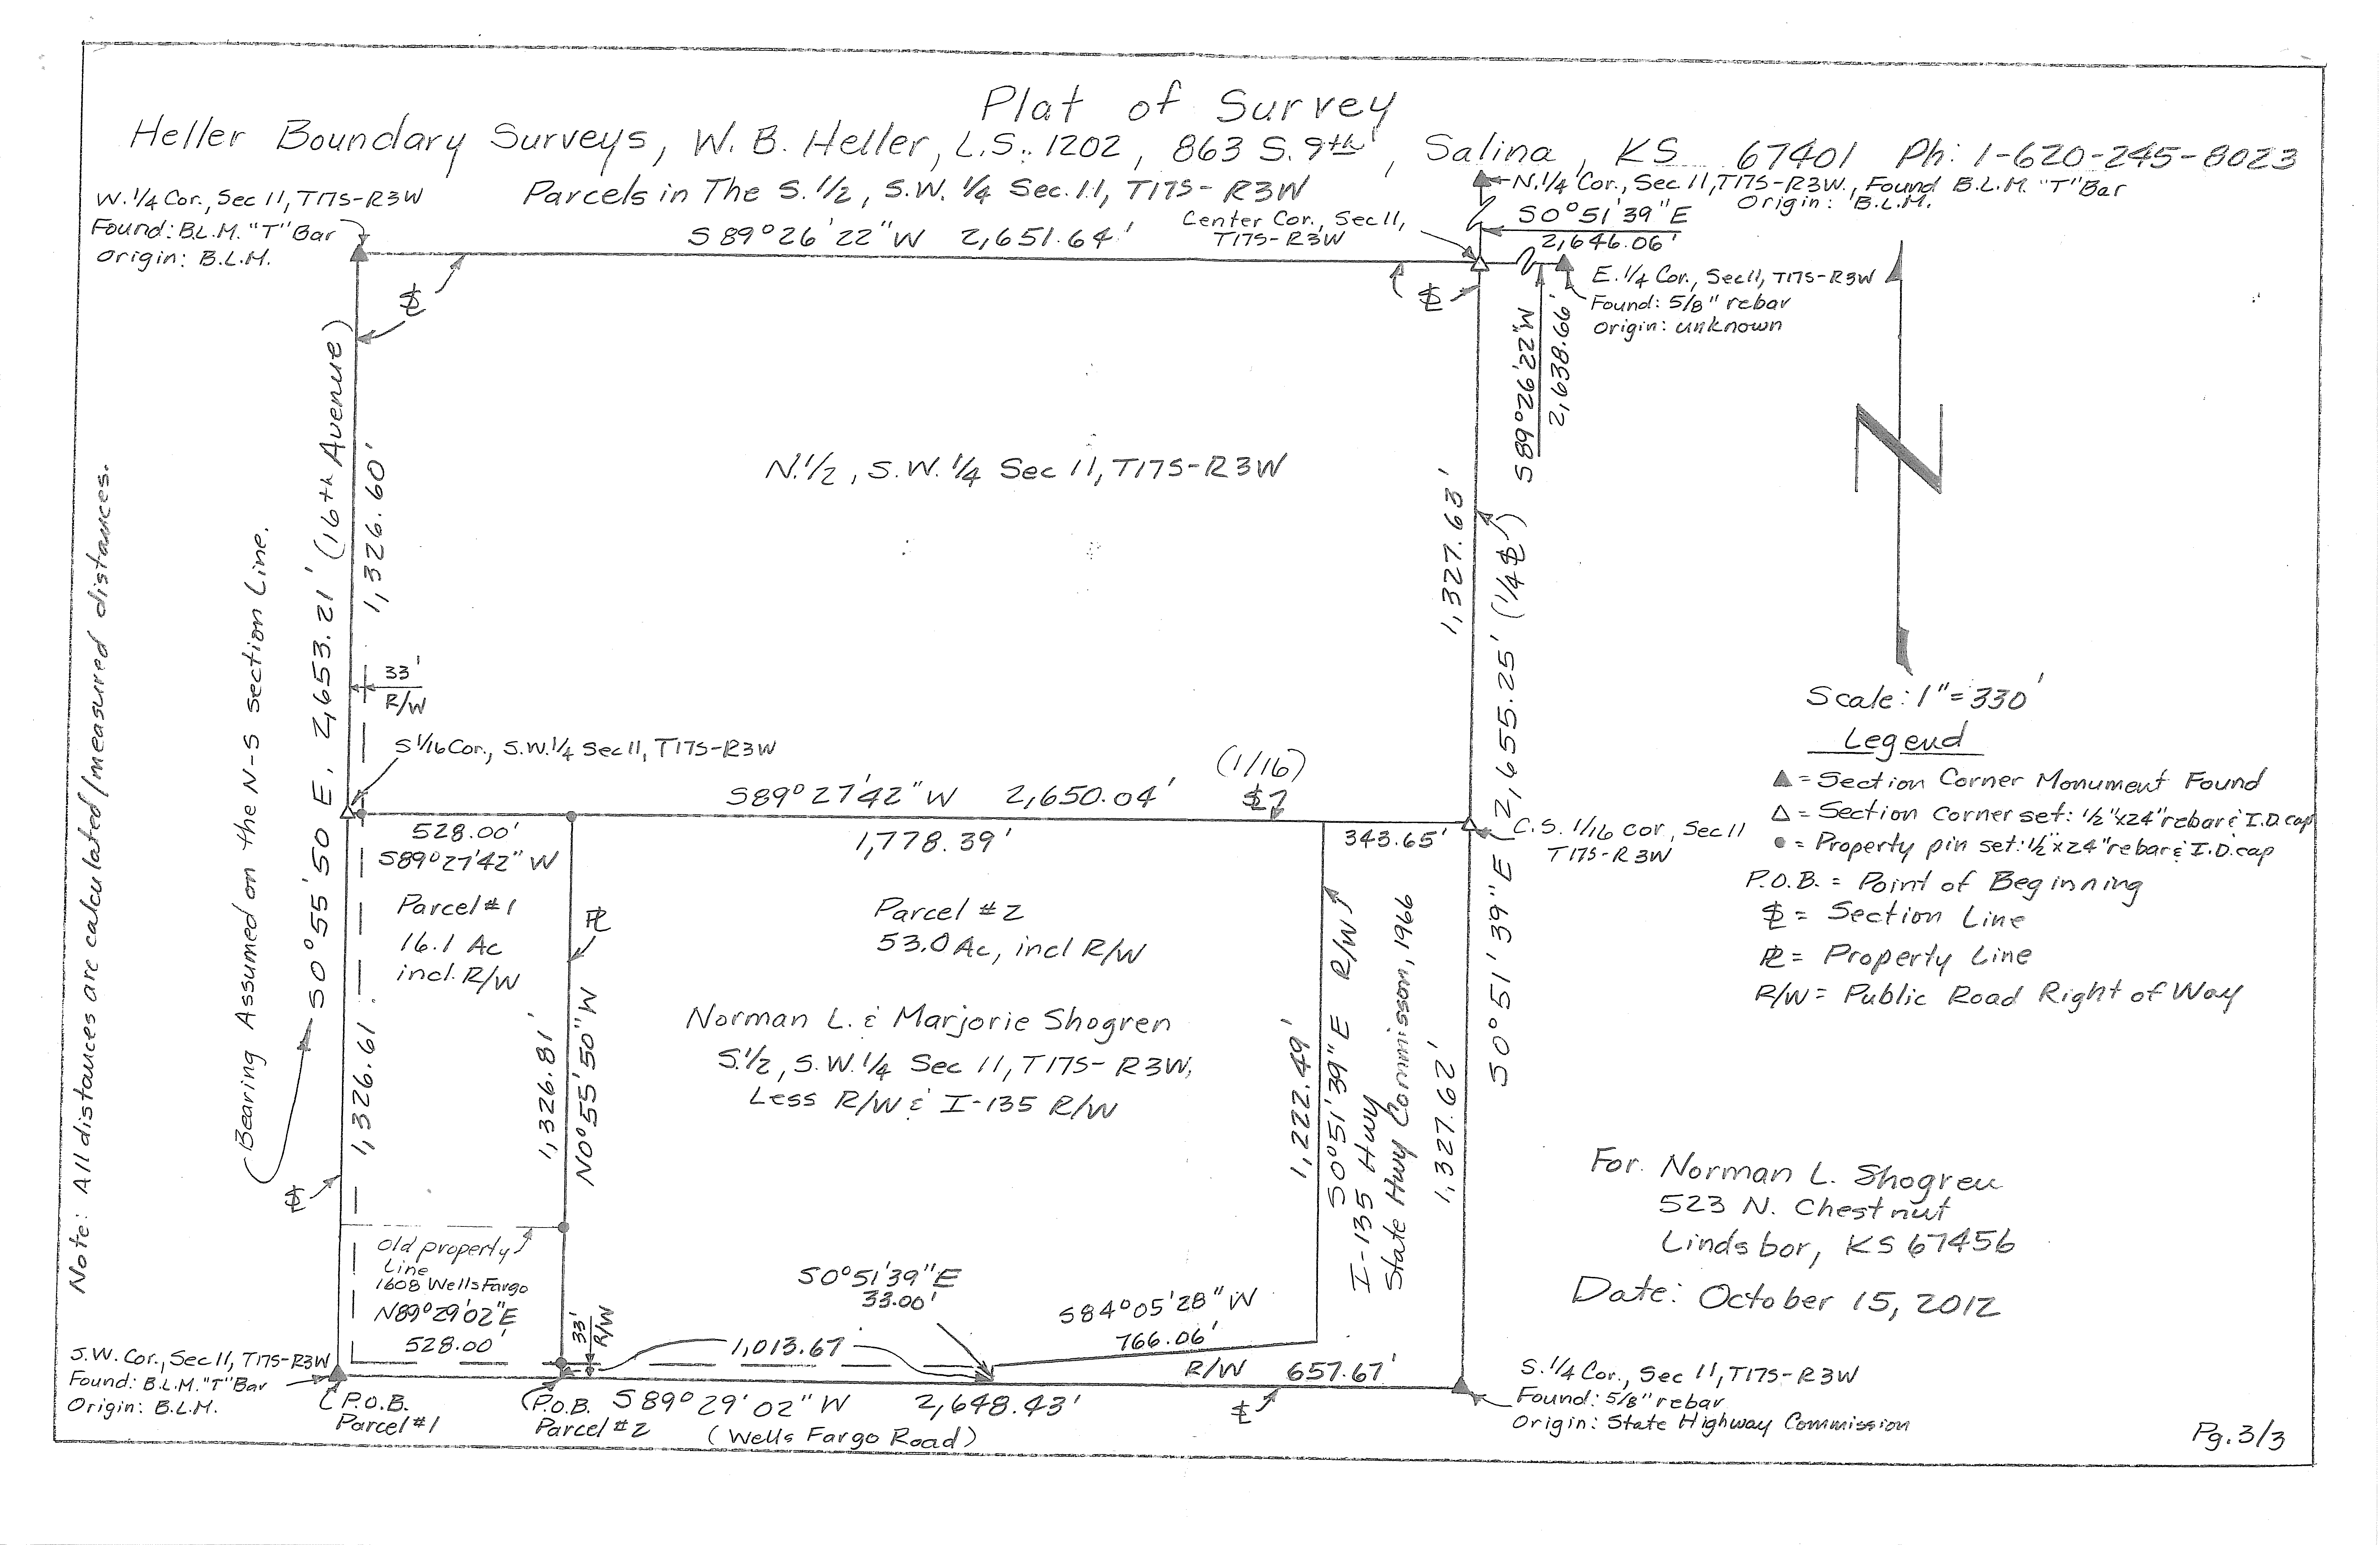 Plat of Survey
Heller Boundary Surveys, W. B. Heller, L.S. 1202, 863 S. 9th, Salina, KS 67401 Ph: 1-620-245-8023
Parcels in The S.1/2, S.W. 1/4 Sec. 11, T17S-R3W
W.1/4 Cor., Sec 11, T17S-R3W
Found: B.L.M. "T" Bar
Origin: B.L.M.
S89°26'22"W 2,651.64'
Center Cor., Sec 11,
T17S-R3W
N.1/4 Cor., Sec 11, T17S-R3W., Found B.L.M. "T" Bar
Origin: B.L.M.
S0°51'39"E
2,646.06'
E.1/4 Cor., Sec 11, T17S-R3W
Found: 5/8" rebar
Origin: unknown
S89°26'22"W
2,638.66'
N.1/2, S.W. 1/4 Sec 11, T17S-R3W
Note: All distances are calculated/measured distances.
Bearing Assumed on the N-S section Line.
S0°55'50 E, 2,653.21' (16th Avenue)
1,326.60'
33'
R/W
1,327.63'
S0°51'39"E 2,655.25' (1/4 SL)
S 1/16 Cor., S.W. 1/4 Sec 11, T17S-R3W
S89°27'42"W 2,650.04'
(1/16)
SL
Scale: 1"=330'
Legend
▲ = Section Corner Monument Found
△ = Section Corner set: 1/2"x24" rebar & I.D. cap
● = Property pin set: 1/2"x24" rebar & I.D. cap
P.O.B. = Point of Beginning
SL = Section Line
PL = Property Line
R/W = Public Road Right of Way
528.00'
S89°27'42"W
1,778.39'
343.65'
C.S. 1/16 cor, Sec 11
T17S-R3W
Parcel #1
16.1 Ac
incl. R/W
PL
Parcel #2
53.0 Ac, incl R/W
Norman L. & Marjorie Shogren
S.1/2, S.W. 1/4 Sec 11, T17S-R3W,
Less R/W & I-135 R/W
1,326.61
1,326.81'
N0°55'50"W
1,222.49'
S0°51'39"E R/W
I-135 Hwy
State Hwy Commisson, 1966
1,327.62'
Old property
Line
1608 Wells Fargo
N89°29'02"E
528.00'
33'
R/W
S0°51'39"E
33.00'
1,013.67
S84°05'28"W
766.06'
R/W 657.67'
For Norman L. Shogren
523 N. Chestnut
Lindsbor, KS 67456
Date: October 15, 2012
S.W. Cor., Sec 11, T17S-R3W
Found: B.L.M. "T" Bar
Origin: B.L.M.
P.O.B.
Parcel #1
P.O.B.
Parcel #2
S89°29'02"W 2,648.43'
(Wells Fargo Road)
SL
S.1/4 Cor., Sec 11, T17S-R3W
Found: 5/8" rebar
Origin: State Highway Commission
Pg. 3/3
N